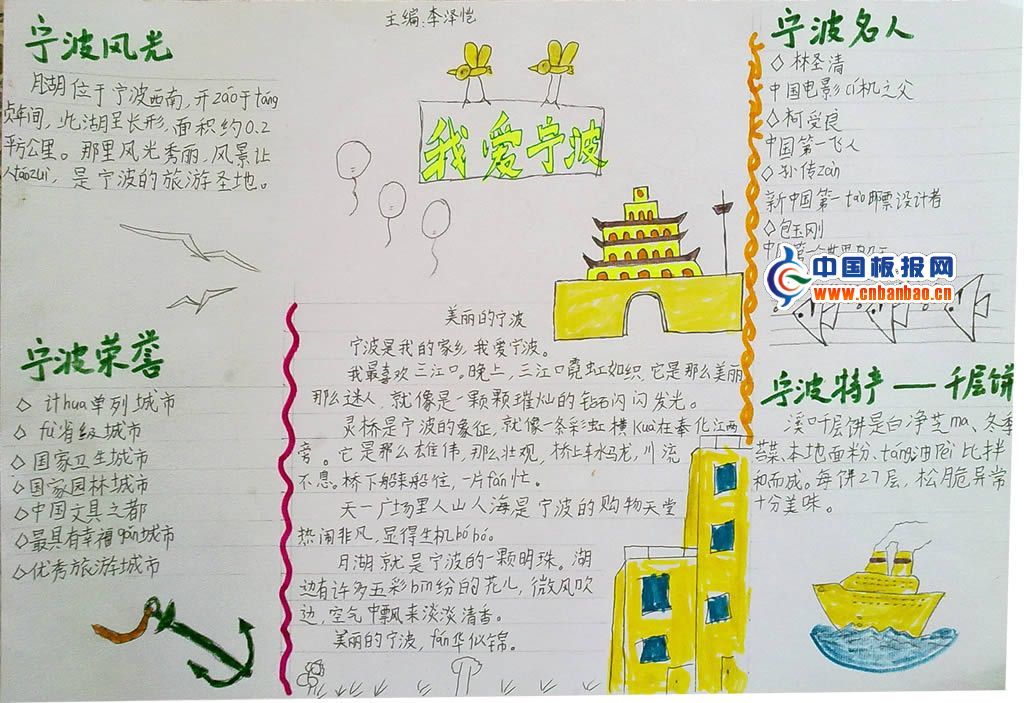 主编:李泽恺
宁波风光
月湖位于宁波西南,开záo于táng
贞年间,此湖呈长形,面积约0.2
平方公里。那里风光秀丽,风景让
人táozuì,是宁波的旅游圣地。
宁波荣誉
◇ 计hua单列城市
◇ fù省级城市
◇ 国家卫生城市
◇国家园林城市
◇中国文具之都
◇最具有幸福gǎn城市
◇优秀旅游城市
我爱宁波
美丽的宁波
宁波是我的家乡,我爱宁波。
我最喜欢三江口。晚上,三江口霓虹如织,它是那么美丽
那么迷人,就像是一颗颗璀灿的钻石闪闪发光。
灵桥是宁波的象征,就像一条彩虹横kuà在奉化江两
旁。它是那么雄伟,那么壮观,桥上车水马龙,川流
不息。桥下船来船往,一片fán忙。
天一广场里人山人海是宁波的购物天堂
热闹非凡,显得生机bóbó。
月湖就是宁波的一颗明珠。湖
边有许多五彩bīn纷的花儿,微风吹
过,空气中飘来淡淡清香。
美丽的宁波,fán华似锦。
宁波名人
◇林圣清
中国电影cí机之父
◇柯受良
中国第一飞人
◇孙传zhé
新中国第一tào邮票设计者
◇包玉刚
中国板报网
www.cnbanbao.cn
宁波特产——千层饼
溪口千层饼是白净芝ma、冬季
苔菜、本地面粉、táng、油pèi比拌
和而成。每饼27层,松脆异常
十分美味。